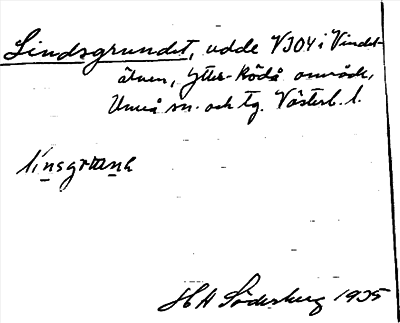 Lindsgrundet, udde V JO4 i Vindel-
älven, Ytter-Rödå område,
Umeå sn. och tg. Västerb. l.
linsgrŧanḁ
H A Söderberg 1935